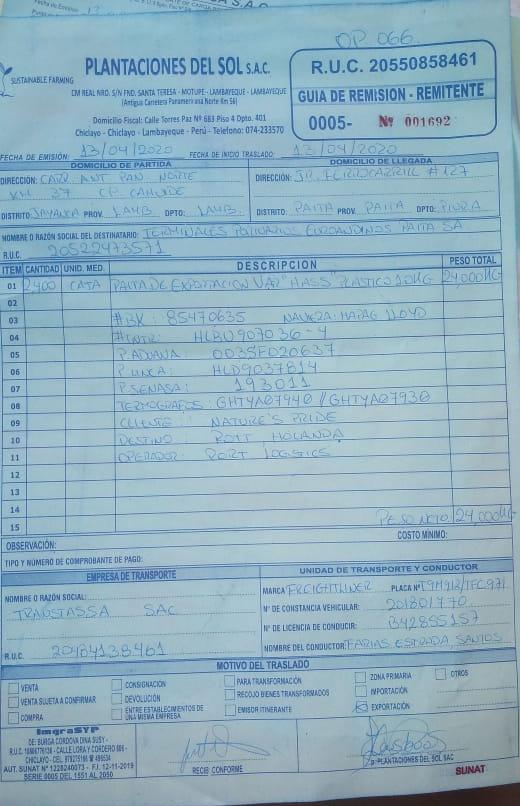 OP 066
SUSTAINABLE FARMING
PLANTACIONES DEL SOL S.A.C.
CM REAL NRO. S/N FND. SANTA TERESA - MOTUPE - LAMBAYEQUE - LAMBAYEQUE
(Antigua Carretera Panamericana Norte Km 56)
Domicilio Fiscal: Calle Torres Paz Nº 683 Piso 4 Dpto. 401
Chiclayo - Chiclayo - Lambayeque - Perú - Telefono: 074-233570
R.U.C. 20550858461
GUIA DE REMISION - REMITENTE
0005- Nº 001692
FECHA DE EMISIÓN: 13/04/2020 FECHA DE INICIO TRASLADO: 13/04/2020
DOMICILIO DE PARTIDA
DIRECCIÓN: CARR. ANT. PAN. NORTE
KM 37 CP. CAHUIDE
DISTRITO: JAYANCA PROV. LAMB. DPTO: LAMB.
DOMICILIO DE LLEGADA
DIRECCIÓN: JR. FERROCARRIL #127
DISTRITO: PAITA PROV. PAITA DPTO: PIURA
NOMBRE O RAZÓN SOCIAL DEL DESTINATARIO: TERMINALES PORTUARIOS EUROANDINOS PAITA SA
R.U.C. 20522473571
ITEM CANTIDAD UNID. MED. DESCRIPCION PESO TOTAL
01 2,400 CAJA PALTA DE EXPORTACION VAR "HASS" PLASTICO 10KG 24,000KG
02
03 #BK: 85470635 NAVIERA: HAPAG LLOYD
04 #CNTR: HLBU907036-4
05 P. ADUANA: 0035FD20637
06 P. LINEA: HLD9037814
07 P. SENASA: 193011
08 TERMOGRAFOS: GHTYA07940 / GHTYA07930
09 CLIENTE: NATURE'S PRIDE
10 DESTINO: ROTT, HOLANDA
11 OPERADOR: PORT LOGISTICS
12
13
14
15 PESO NETO: 24,000KG
OBSERVACIÓN: COSTO MÍNIMO:
TIPO Y NÚMERO DE COMPROBANTE DE PAGO:
EMPRESA DE TRANSPORTE
NOMBRE O RAZÓN SOCIAL:
TRANSTASSA SAC
R.U.C. 20484138461
UNIDAD DE TRANSPORTE Y CONDUCTOR
MARCA FREIGHTLINER PLACA Nº T9M912/TFC971
Nº DE CONSTANCIA VEHICULAR: 201801770
Nº DE LICENCIA DE CONDUCIR: B42855157
NOMBRE DEL CONDUCTOR: FARIAS ESTRADA, SANTOS
MOTIVO DEL TRASLADO
VENTA
VENTA SUJETA A CONFIRMAR
COMPRA
CONSIGNACIÓN
DEVOLUCIÓN
ENTRE ESTABLECIMIENTOS DE
UNA MISMA EMPRESA
PARA TRANSFORMACIÓN
RECOJO BIENES TRANSFORMADOS
EMISOR ITINERANTE
ZONA PRIMARIA
IMPORTACIÓN
EXPORTACIÓN
OTROS
ImgraSYP
DE: BURGA CORDOVA DINA SUSY -
CALLE LORA Y CORDERO 606 -
AUT. SUNAT Nº 1228240073 - F.I. 12-11-2019
SERIE 0005 DEL 1551 AL 2050
RECIBÍ CONFORME
p. PLANTACIONES DEL SOL SAC
SUNAT